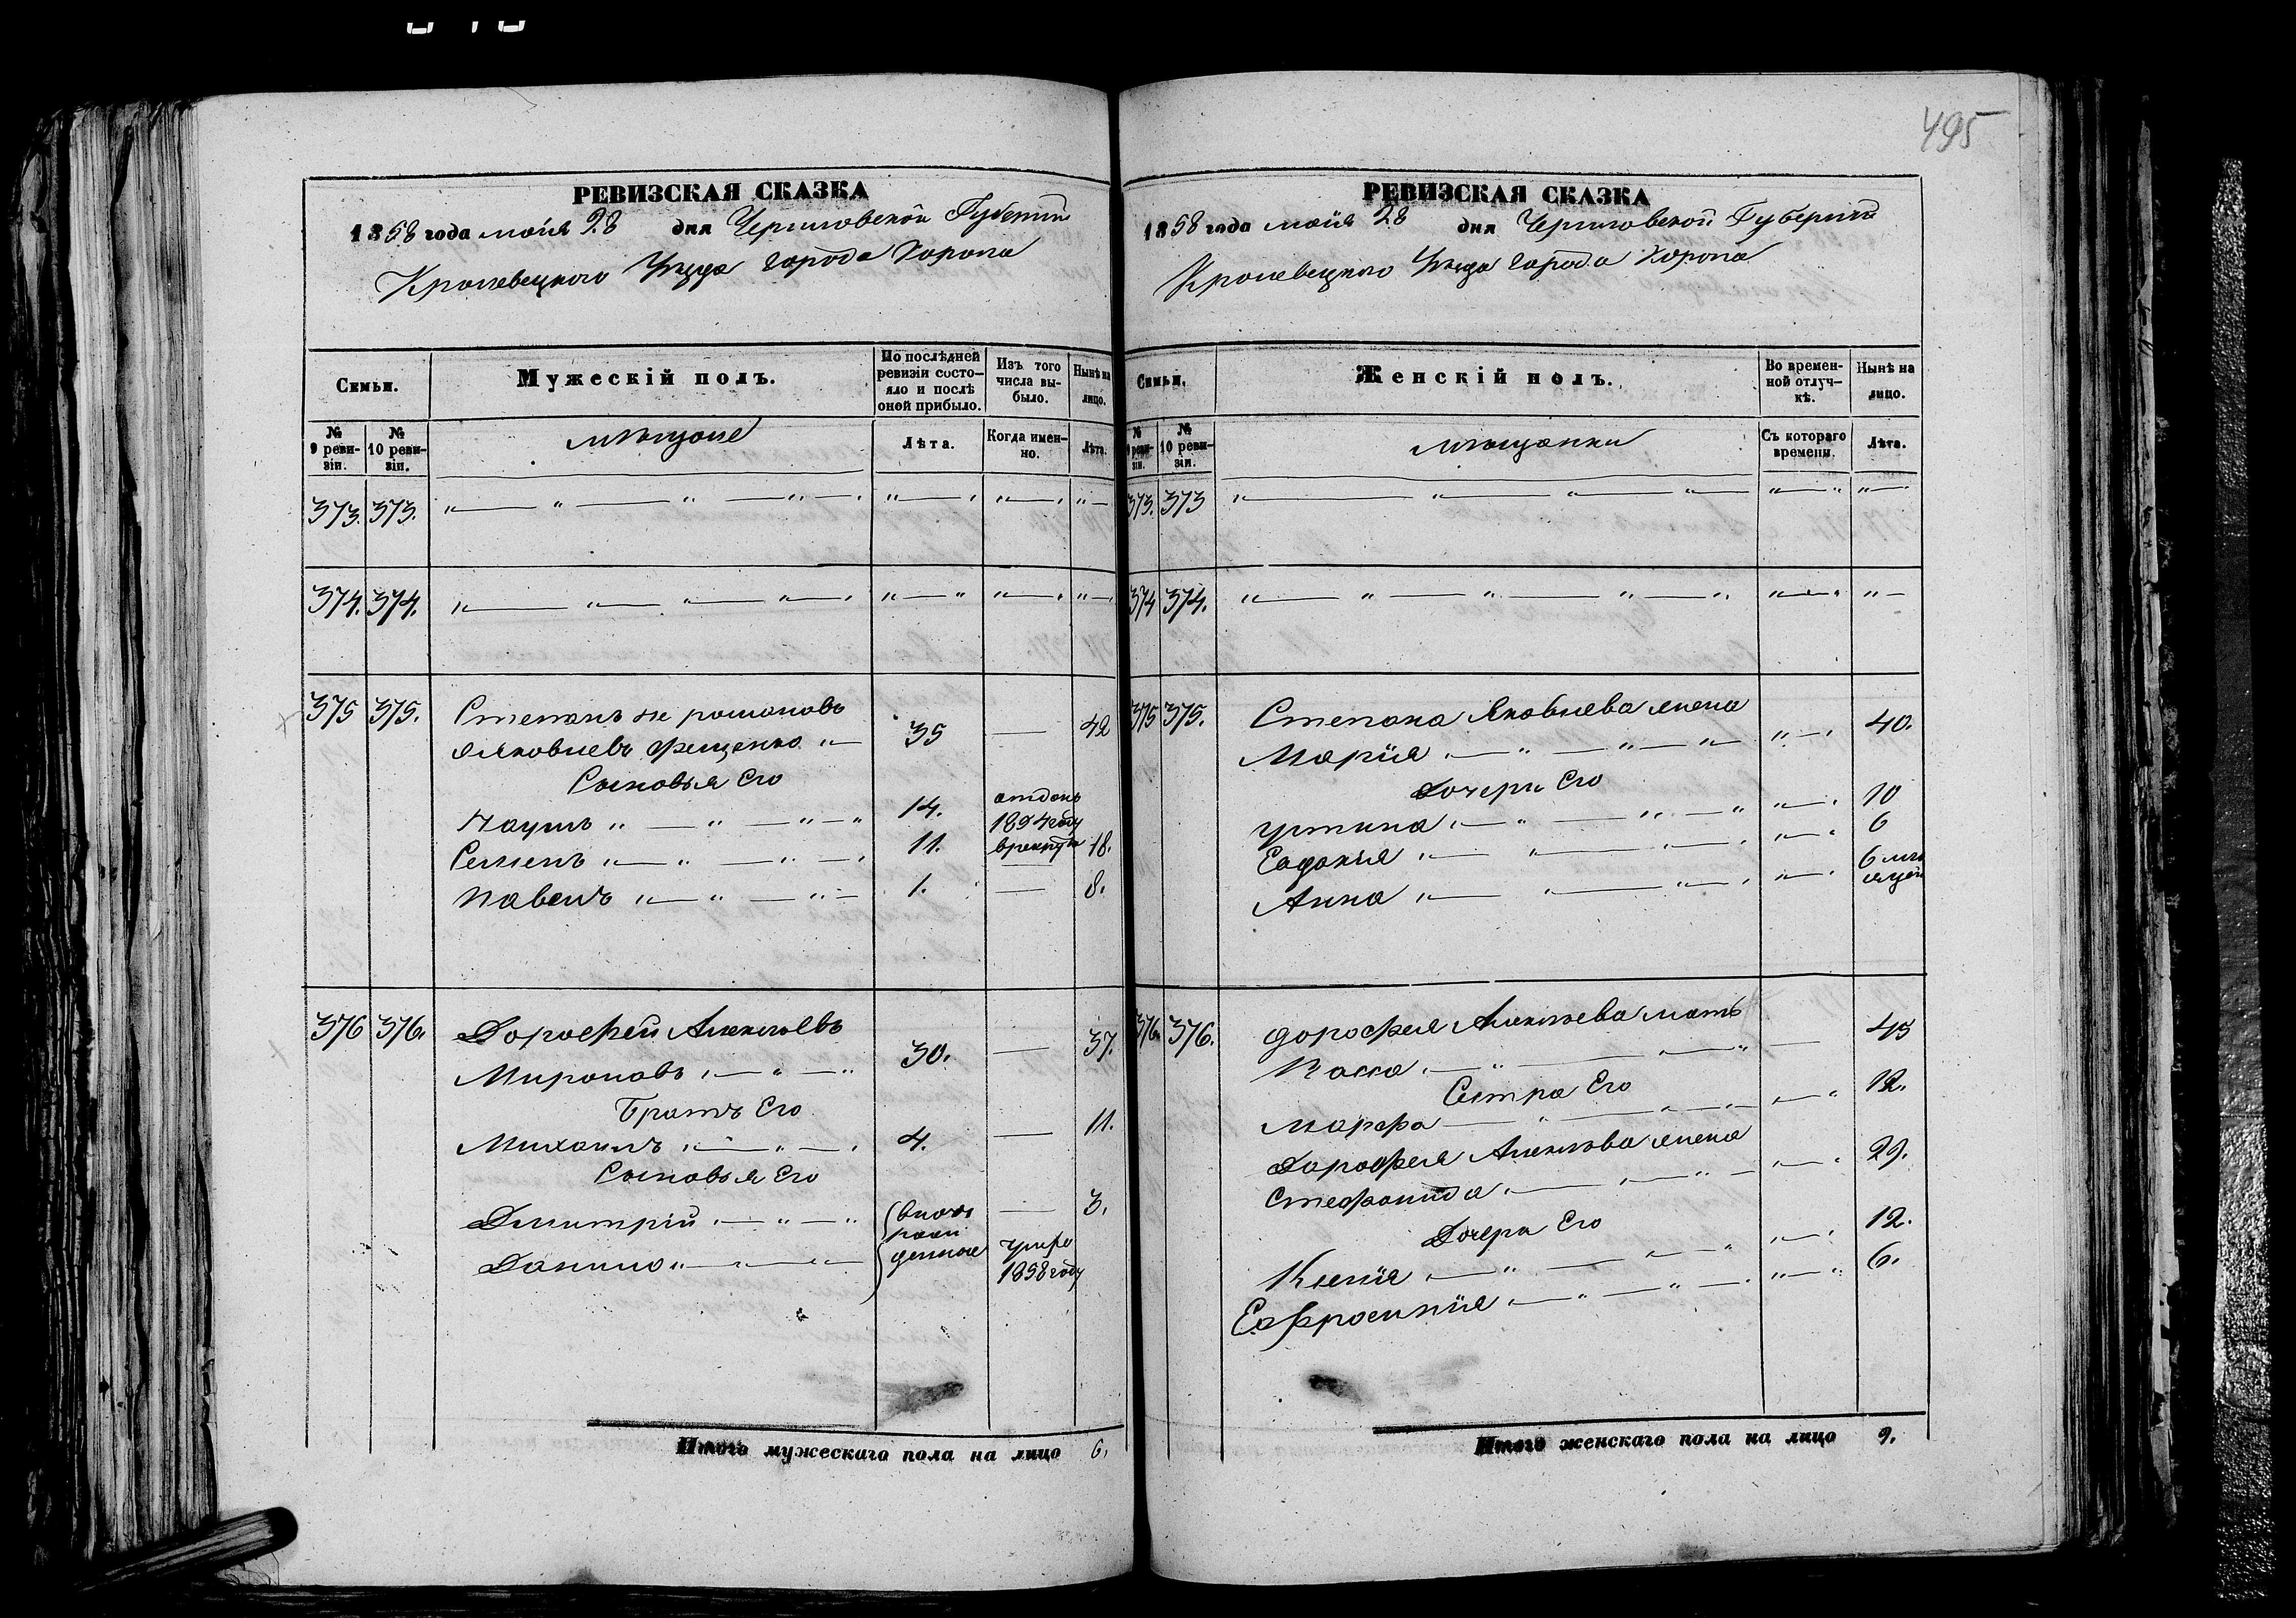 495
РЕВИЗСКАЯ СКАЗКА
1858 года мая 28 дня Черниговской Губерніи
Кролевецкого Уезда города Коропа
Семьи.
Мужескій полъ.
По послѣдней ревизіи состояло и послѣ оной прибыло.
Изъ того числа выбыло.
Нынѣ на лицо.
№ 9 ревизіи.
№ 10 ревизіи.
мѣщане
Лѣта.
Когда именно.
Лѣта.
373. 373. „ — „ — „ — „ — „
374. 374. „ — „ — „ — „ — „
375 375. Степанъ не романовъ
а Яковлевъ Фещенко „ — 35 — 42
Сыновья Его
Наумъ „ — „ — „ — „ 14. отданъ 1854 году в рекруты
Семенъ „ — „ — „ — „ 11. 18.
Павелъ „ — „ — „ — 1. — 8.
376 376. Дорофей Алексѣевъ
Мироновъ „ — „ — „ 30. — 37.
Братъ Его
Михаилъ „ — „ — „ 4. — 11.
Сыновья Его
Дмитрій „ — „ — „ вновь рожденные — 3.
Данило „ — „ — „ — умре 1858 году
Итого мужескаго пола на лицо 6.
РЕВИЗСКАЯ СКАЗКА
1858 года мая 28 дня Черниговской Губерніи
Кролевецкого Уезда города Коропа
Семьи.
Женскій полъ.
Во временной отлучкѣ.
Нынѣ на лицо.
№ 9 ревизіи.
№ 10 ревизіи.
мѣщанки
Съ котораго времени.
Лѣта.
373. 373 „ — „ — „ — „ —
374 374. „ — „ — „ — „ — „
375 375. Степана Яковлева жена
Марія „ — „ — „ — „ 40.
Дочери Его
Устина „ — „ — „ — „ 10
Евдокія „ — „ — „ — „ 6
Анна „ — „ — „ — „ 6 месяцей
376. 376. Дорофея Алексѣева мать
Васса „ — „ — „ — „ 45
Сестра Его
Марфа — „ — „ — „ 12.
Дорофея Алексѣва жена
Стефанида „ — „ — „ — 29.
Дочери Его
Ксенія „ — „ — „ — „ 12.
Ефросинія „ — „ — „ — „ 6.
Итого женскаго пола на лицо 9.